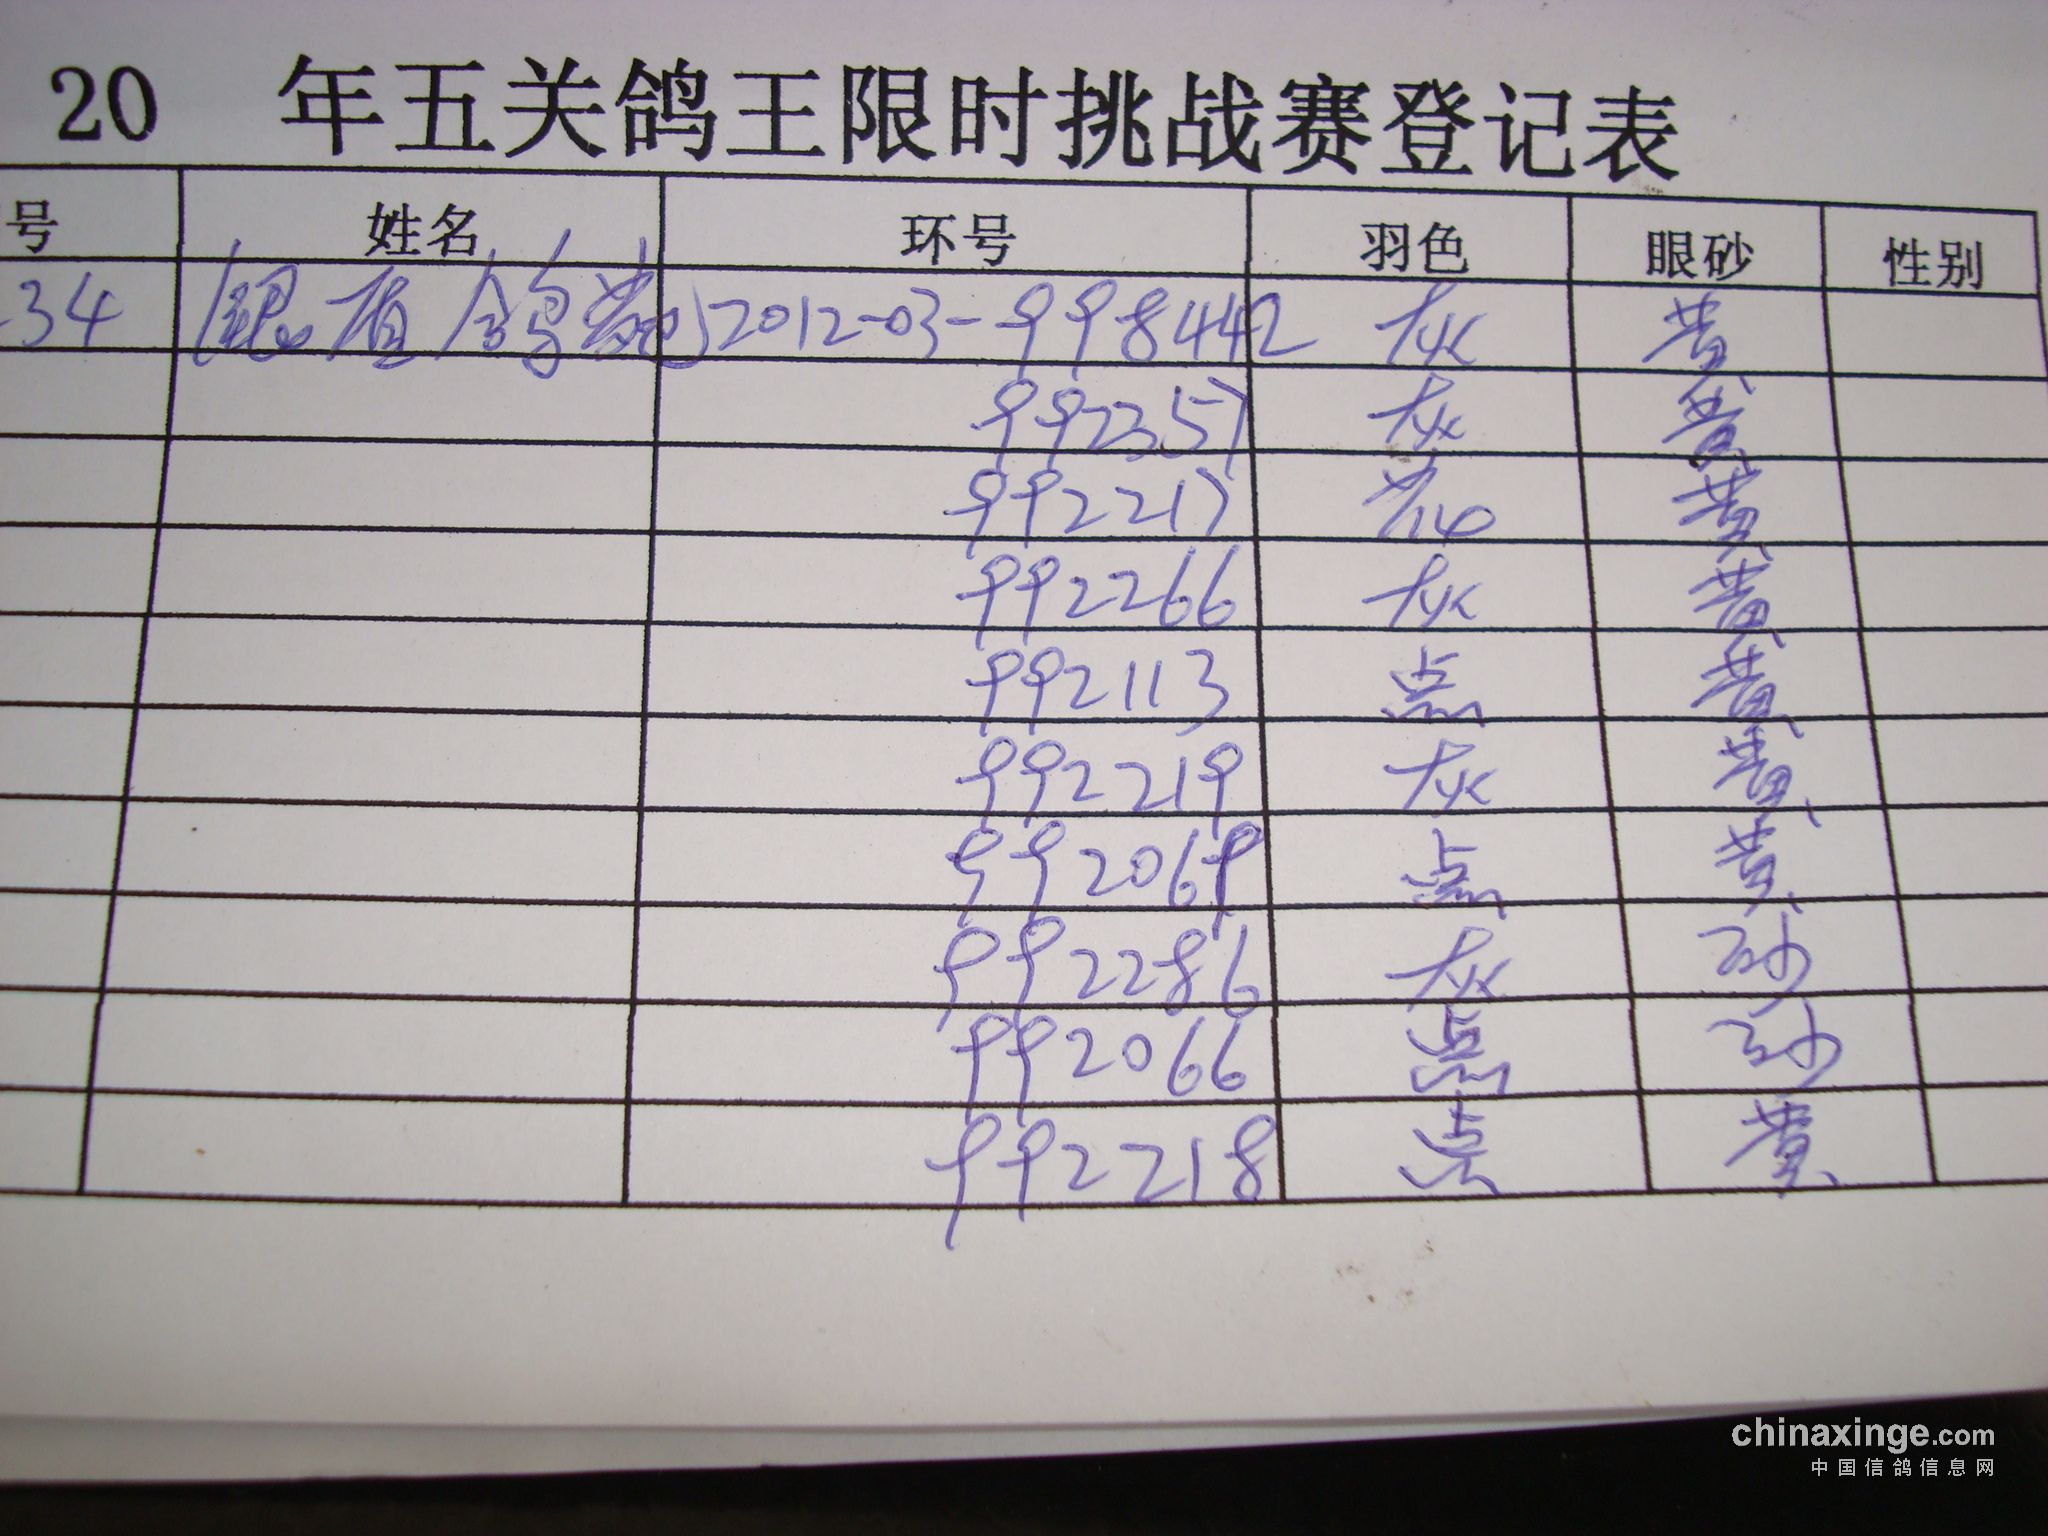 20 年五关鸽王限时挑战赛登记表
号 姓名 环号 羽色 眼砂 性别
34 鸽 2012-03-998442 灰 黄
992357 灰 黄
992217 花 黄
992266 灰 黄
992113 点 黄
992219 灰 黄
992069 点 黄
992286 灰 砂
992066 点 砂
992218 点 黄
chinaxinge.com
中国信鸽信息网